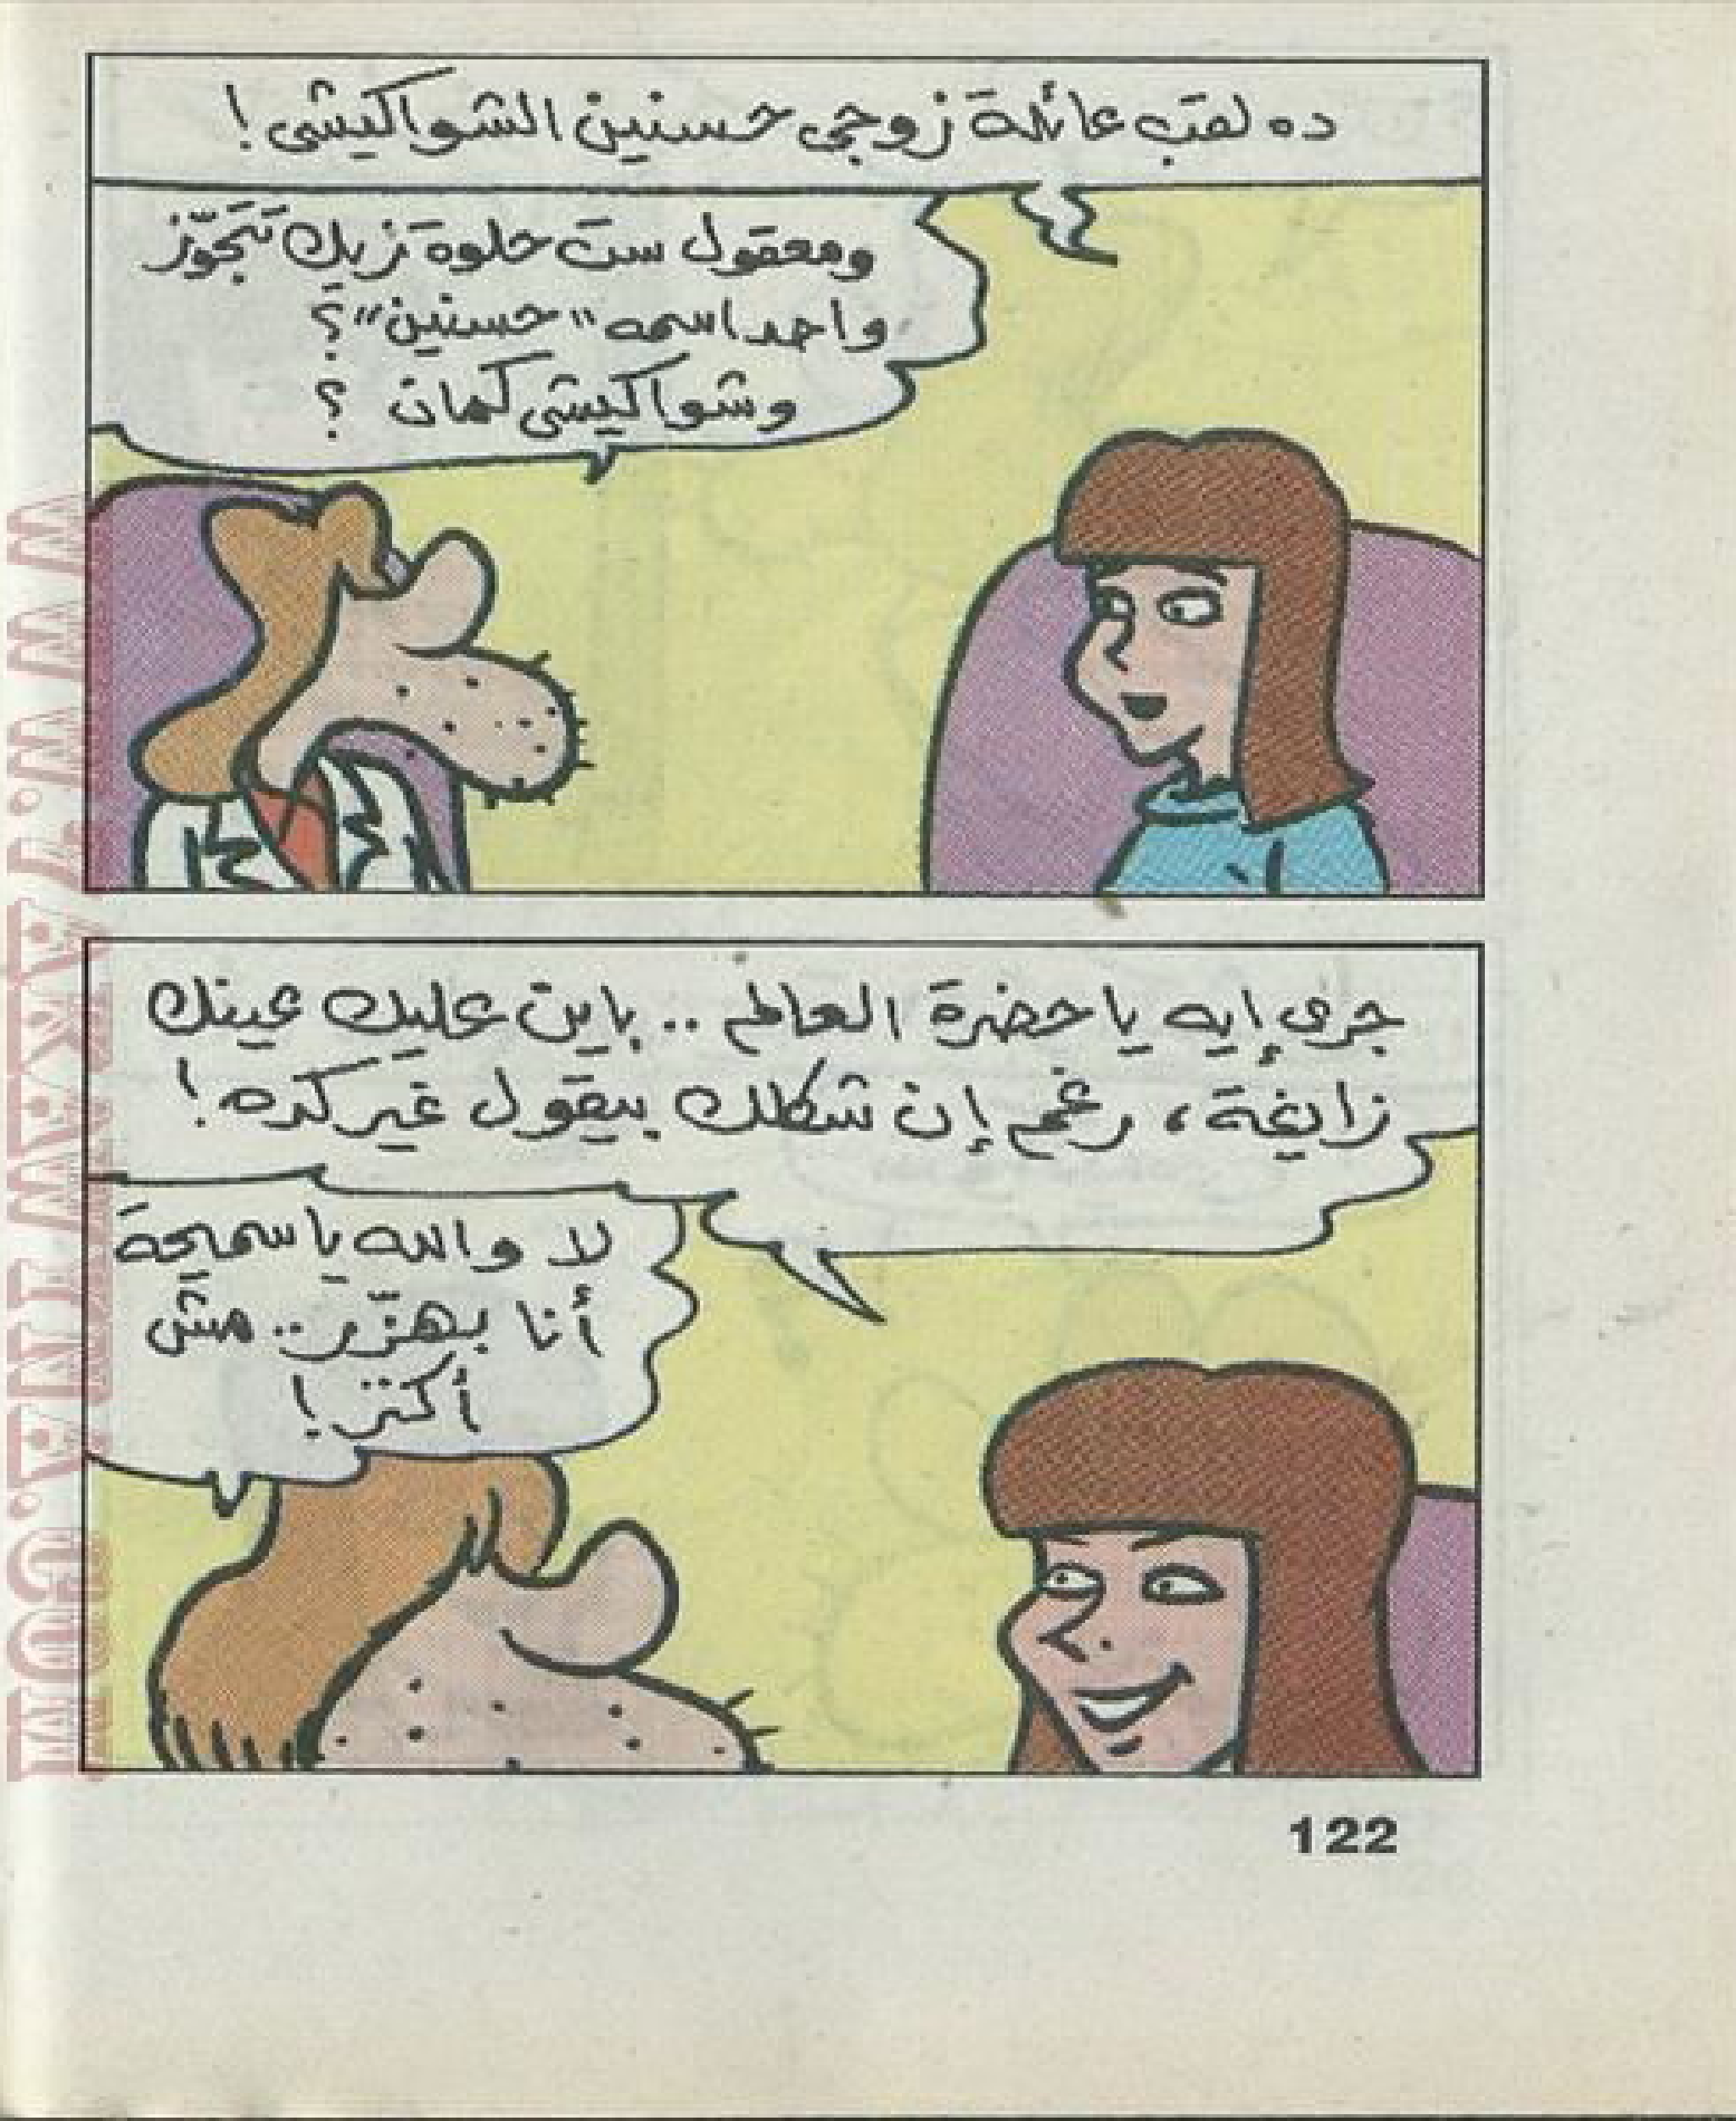 ده لقب عائلة زوجى حسنين الشواكيشى!
ومعقول ست حلوة زيك تتجوّز
واحد اسمه "حسنين"؟
وشواكيشى كمان ؟
جرى إيه يا حضرة العالم .. باين عليك عينك
زايغة، رغم إن شكلك بيقول غير كده!
لا والله يا سميحة
أنا بهزّر.. مش
أكتر!
122